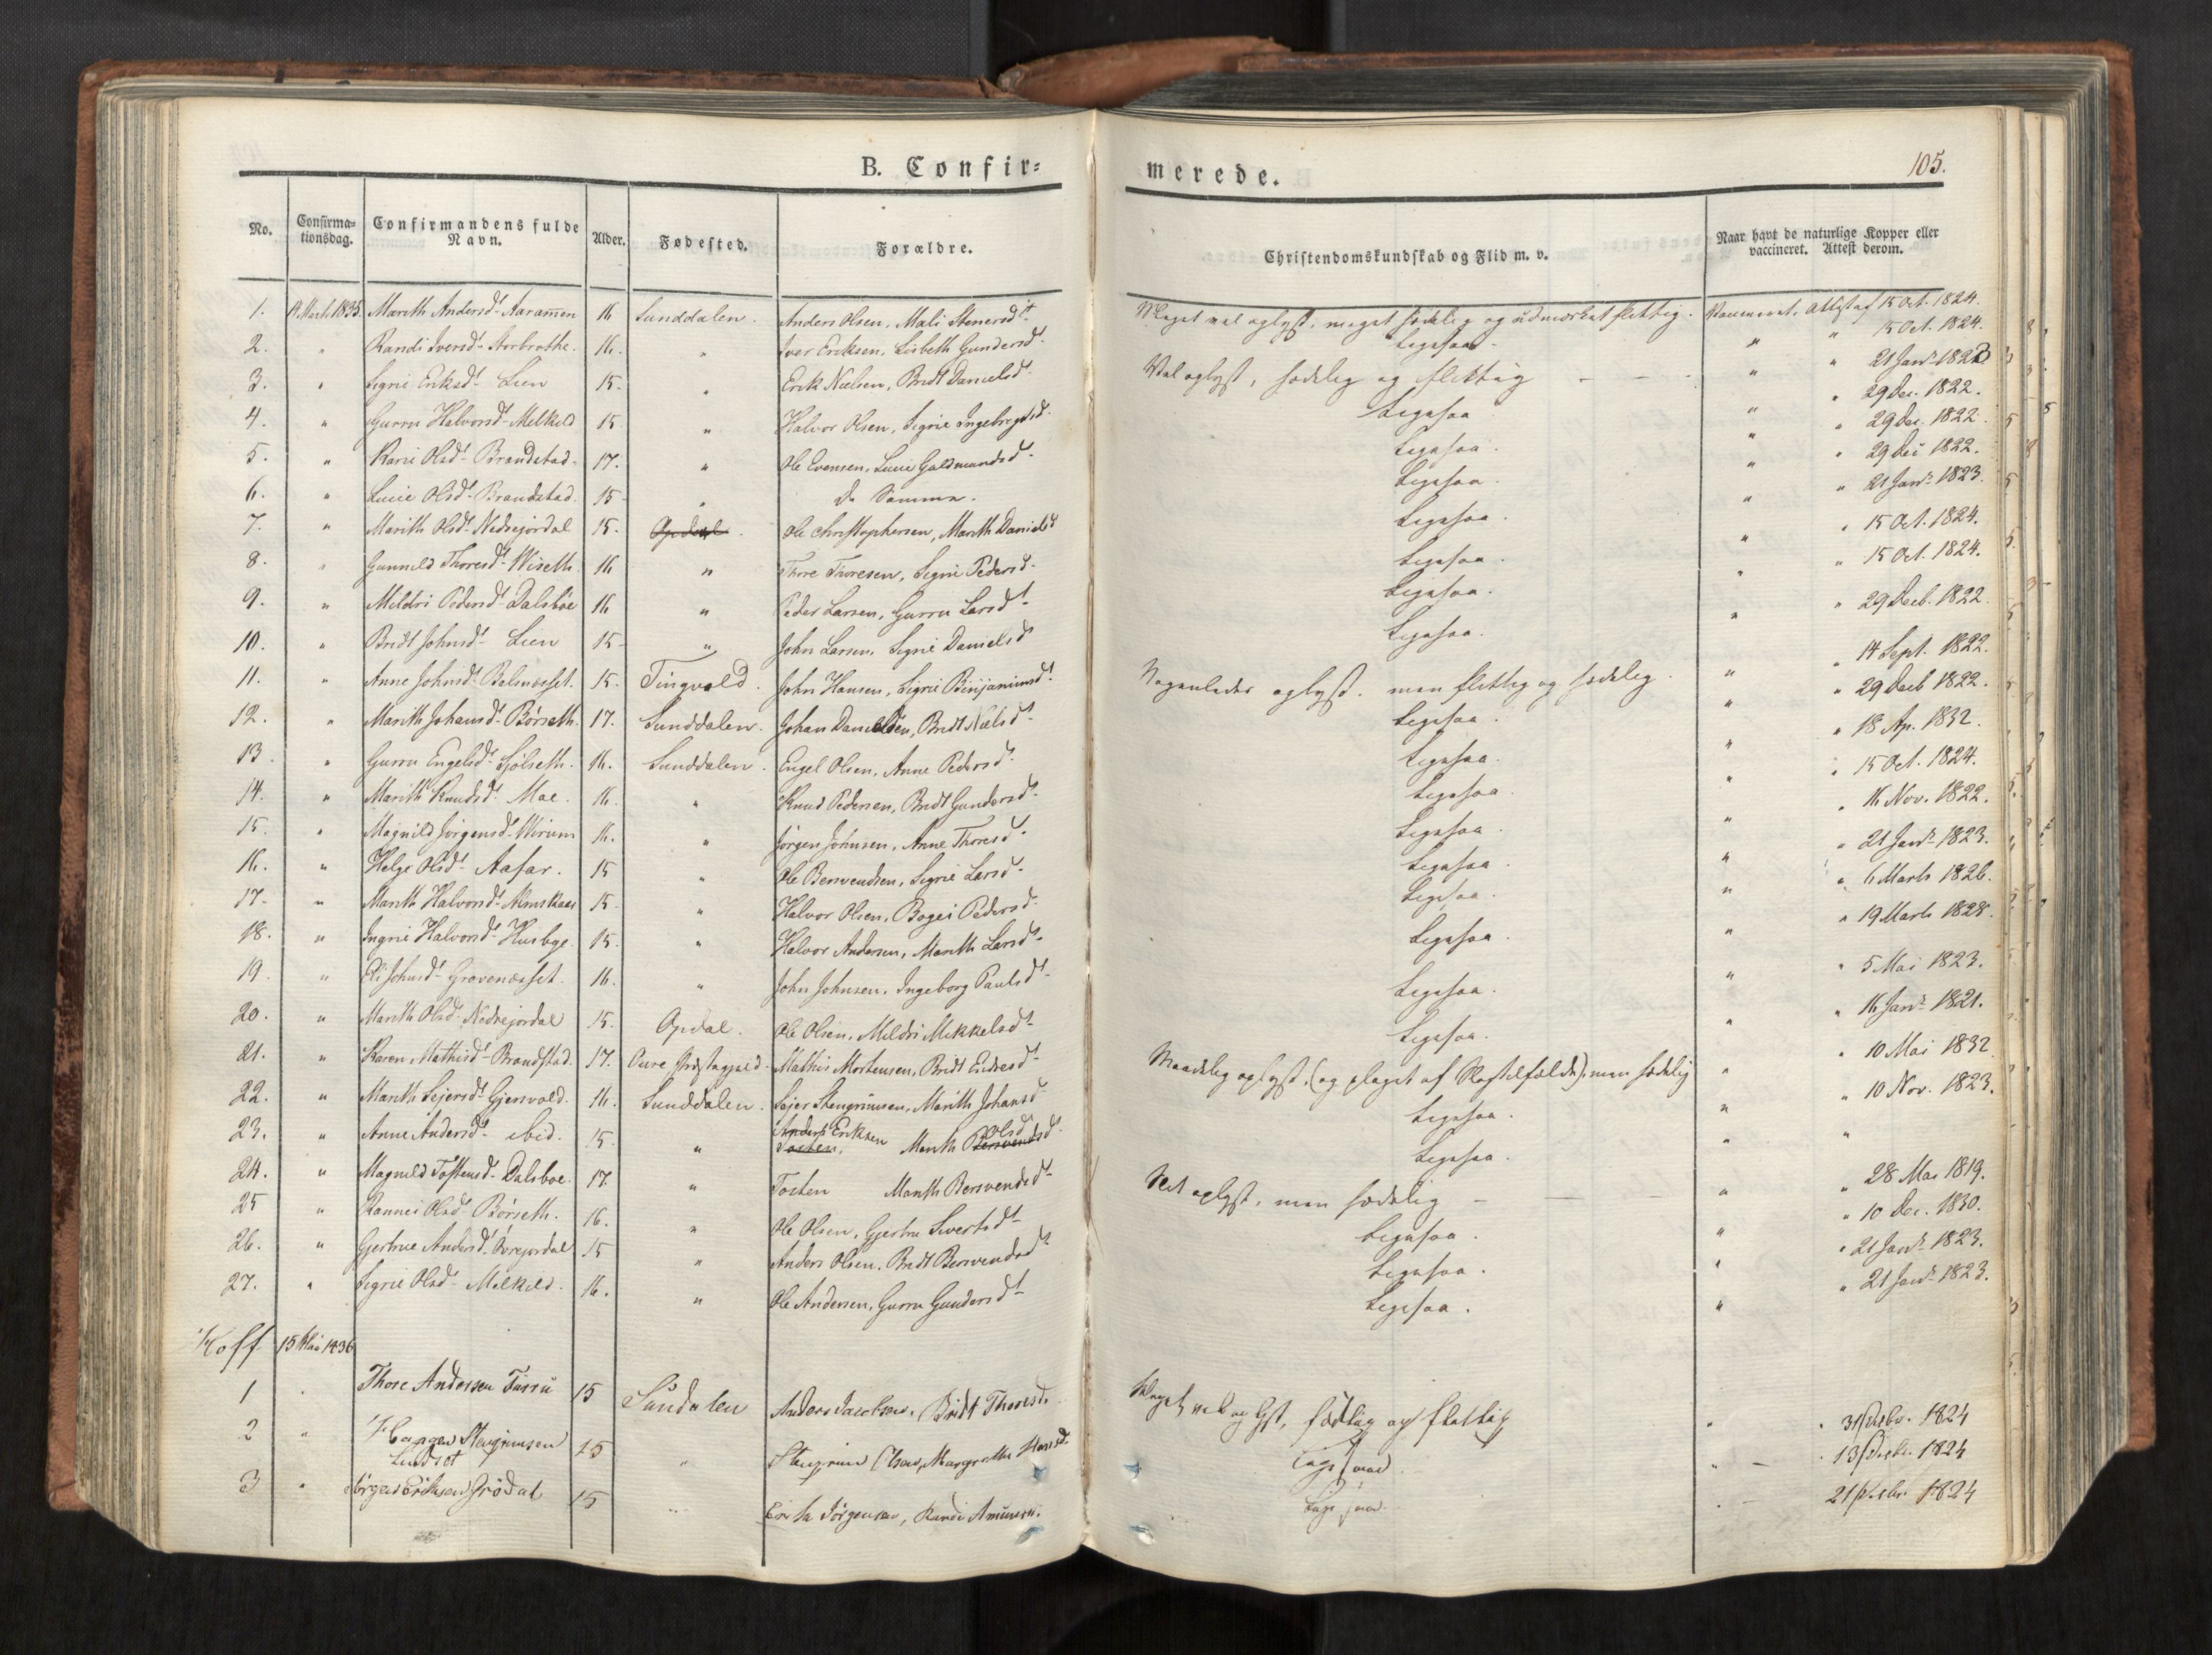 B. Confir=
merede.
105.
No. Confirma=tionsdag. Confirmandens fulde Navn. Alder. Fødested. Forældre. Christendomskundskab og Flid m. v. Naar havt de naturlige Kopper eller vaccineret. Attest derom.
1. Marith Andersdt Aaramen 16 Sunddalen. Anders Olsen, Mali Stenersdt Meget vel oplyst, meget sædelig og udmærket flittig. Vaccineret, Attest af 15 Oct. 1824.
2. " Randi Iversdt Storbrathe. 16. " Iver Eriksen, Lisbeth Gundersdt Ligesaa. " " 15 Oct. 1824.
3. " Sigrie Eriksdt Lien 15. " Erik Nielsen, Bridt Danielsdt Vel oplyst, sædelig og flittig " " 21 Janr 1823
4. " Gurru Halvorsdt Melkild 15. " Halvor Olsen, Sigrie Ingebrigtsd. Ligesaa " " 29 Dec. 1822.
5. " Karie Olsdt Brandstad. 17. " Ole Evensen, Lucie Galdmandsdt Ligesaa. " " 29 Dec. 1822.
6. " Lucie Olsdt Brandstad. 15 " De Samme. Ligesaa. " " 29 Dec 1822.
7. " Marith Olsdt Nedrejordal 15. Opdal. Ole Christophersen, Marith Danielsd Ligesaa. " " 21 Janr 1823.
8. " Gunnild Thoresdt Wiseth. 16 " Thore Thoresen, Sigrie Pedersd. Ligesaa. " " 15 Oct. 1824.
9. " Mildri Pedersdt Dalsböe 16 " Peder Larsen, Gurru Larsdt Ligesaa. " " 15 Oct. 1824.
10. " Bridt Johnsdt Lien 15 " John Larsen, Sigrie Danielsd Ligesaa. " " 29 Decb. 1822.
11. " Anne Johnsdt Balsnæsset. 15. Tingvold. John Hansen, Sigrie Binjaminsdt Nogenledes oplyst, men flittig og sædelig. " " 14 Sept. 1822.
12. " Marith Johansdt Børseth. 17. Sunddalen. Johan Danielsen, Bridt Nielsdt Ligesaa. " " 29 Decb 1822.
13 " Gurru Engelsdt Sjølseth. 16. Sunddalen. Engel Olsen, Anne Pedersdt Ligesaa. " " 18 Ap. 1832.
14. " Marith Knudsdt Moe. 16. " Knud Pedersen, Bridt Gundersdt Ligesaa. " " 15 Oct. 1824.
15. " Magnild Jörgensdt Wirum 16. " Jörgen Johnsen, Anne Thoresdt Ligesaa. " " 16 Nov. 1822.
16. " Helge Olsdt Aafar. 15 " Ole Bersvendsen, Sigrie Larsdt Ligesaa. " " 21 Janr 1823.
17. " Marith Halvorsdt Almskaar 15 " Halvor Olsen, Bogei Pedersdt Ligesaa. " " 6 Marts 1826.
18. " Ingrie Halvorsdt Husbye. 15. " Halvor Andersen, Marith Larsdt Ligesaa. " " 19 Marts 1828.
19. " Eli Johnsdt Grovenæsset. 16. " John Johnsen, Ingeborg Paulsdt Ligesaa. " " 5 Mai 1823.
20. " Marith Olsdt Nedrejordal 15. Opdal. Ole Olsen, Mildri Mikkelsdt Ligesaa. " " 16 Janr 1821.
21. " Karen Mathisdt Brandstad. 17. Aure Præstegjeld. Mathis Mortensen, Bridt Endresdt Maadelig oplyst, (og plaget af Slagtilfælde), men sædelig " " 10 Mai 1832
22. " Marith Sejersdt Gjersvold. 16. Sunddalen. Sejer Stengrimsen, Marith Johansd Ligesaa. " " 10 Nov. 1823.
23. " Anne Andersdt ibid. 15. " Anders Eriksen Tosten, Marith Olsdt Bersvendsdt Ligesaa. " "
24. " Magnild Tostensd. Dalsboe. 17. " Tosten Marith Bersvendsdt Slet oplyst, men sædelig " " 28 Mai 1819.
25 " Rannei Olsd. Börseth. 16. " Ole Olsen, Gjertru Sivertsdt Ligesaa. " " 10 Dec. 1830.
26. " Gjertrue Andersd. Övrejordal 15 " Anders Olsen, Bridt Bersvendsdt Ligesaa. " " 21 Janr 1823.
27. " Sigrie Olsd. Melkild. 16. " Ole Andersen, Gurru Gundersdt Ligesaa. " " 21 Janr 1823.
15 Mai 1836
1 " Thore Andersen Furru 15 Sundalen Anders Jacobsen, Bridt Thoresdt Meget vel oplyst, sædelig og flittig " " 31 Decbr. 1824
2 " Stengrimsen 15 " Stengrim Olsen, Margrethe Hansd. Ligesaa. " " 13 Decbr. 1824
3 " Jörgen Eriksen Grödal 15 " Erik Jörgensen, Randi Amunsn. Ligesaa. " 21 Decbr. 1824